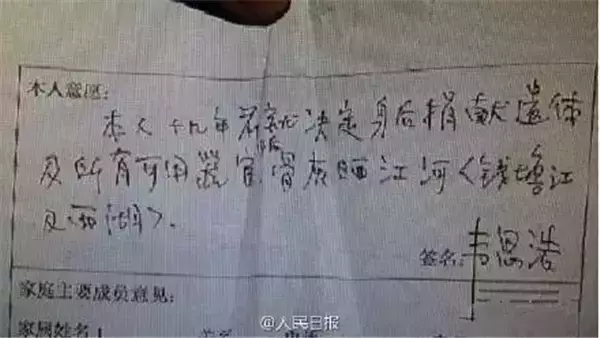 本人意愿:
本人十九年前就决定身后捐献遗体
及所有可用器官骨灰晒江河<钱塘江
及西湖>.
签名:韦思浩
家庭主要成员意见:
家属姓名
@人民日报